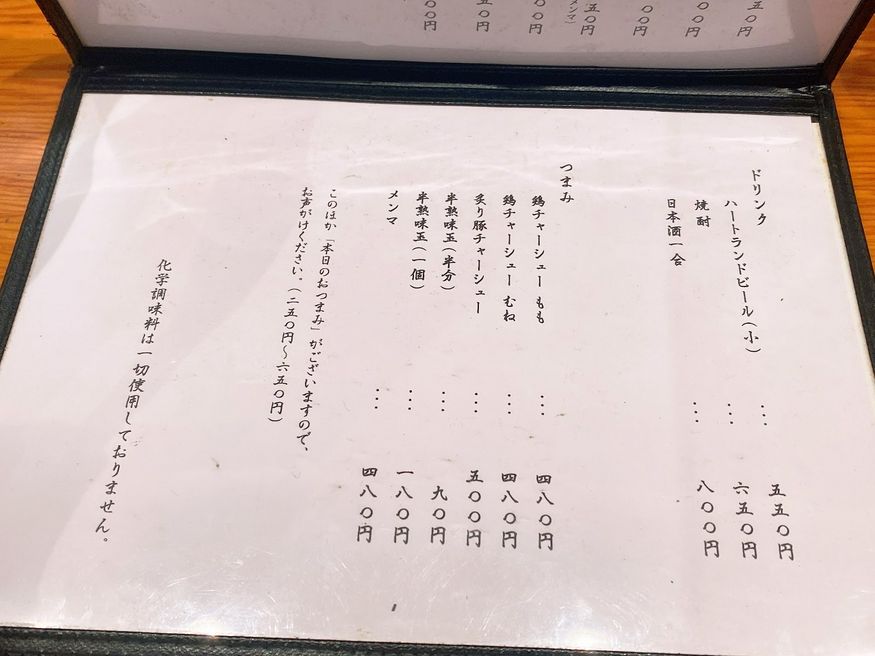 ドリンク
ハートランドビール(小) … 五五〇円
焼酎 … 六五〇円
日本酒一合 … 八〇〇円
つまみ
鶏チャーシュー もも … 四八〇円
鶏チャーシュー むね … 四八〇円
炙り豚チャーシュー … 五〇〇円
半熟味玉(半分) … 九〇円
半熟味玉(一個) … 一八〇円
メンマ … 四八〇円
このほか「本日のおつまみ」がございますので、
お声がけください。(二五〇円~六五〇円)
化学調味料は一切使用しておりません。